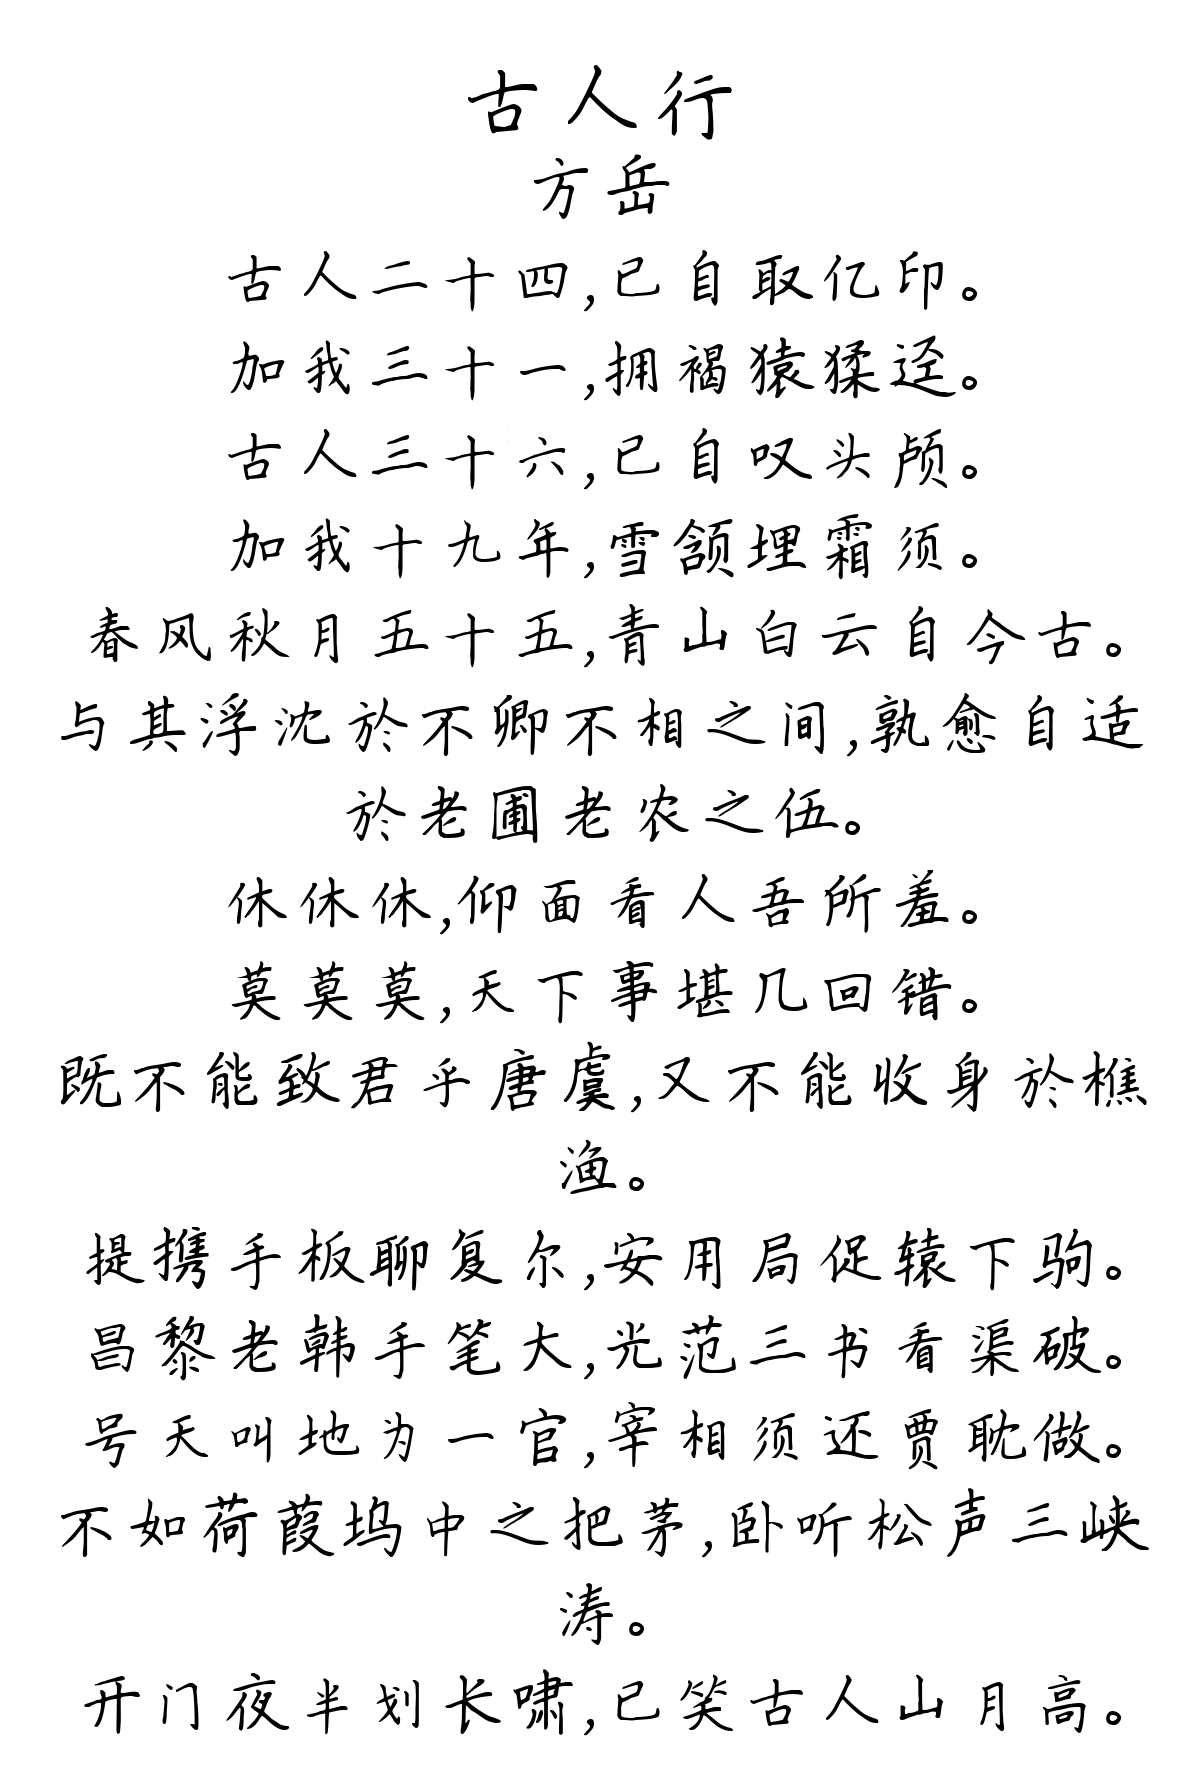 古人行
方岳
古人二十四,已自取亿印。
加我三十一,拥褐猿猱迳。
古人三十六,已自叹头颅。
加我十九年,雪颔埋霜须。
春风秋月五十五,青山白云自今古。
与其浮沈於不卿不相之间,孰愈自适
於老圃老农之伍。
休休休,仰面看人吾所羞。
莫莫莫,天下事堪几回错。
既不能致君乎唐虞,又不能收身於樵
渔。
提携手板聊复尔,安用局促辕下驹。
昌黎老韩手笔大,光范三书看渠破。
号天叫地为一官,宰相须还贾耽做。
不如荷葭坞中之把茅,卧听松声三峡
涛。
开门夜半划长啸,已笑古人山月高。